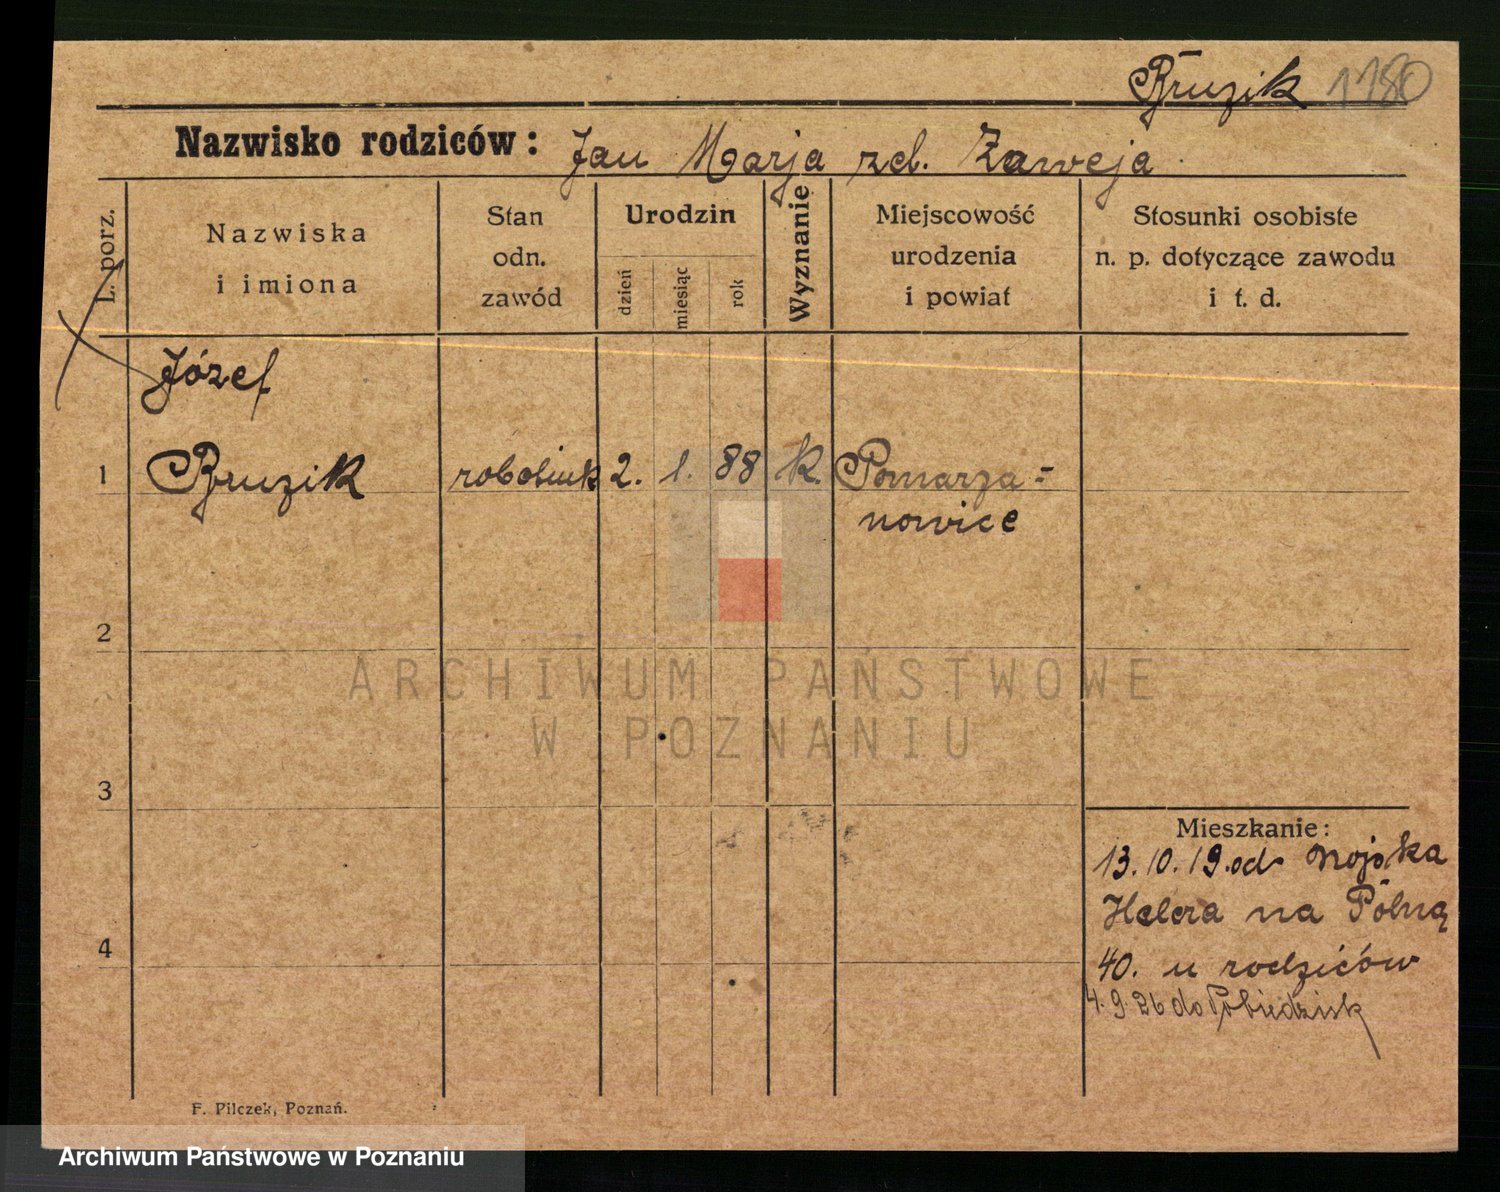 Bruzik 1180
Nazwisko rodziców: Jan Marja zd. Zaweja
L. porz.
Nazwiska
i imiona
Stan
odn.
zawód
Urodzin
dzień
miesiąc
rok
Wyznanie
Miejscowość
urodzenia
i powiat
Stosunki osobiste
n. p. dotyczące zawodu
i t. d.
Józef
1 Bruzik robotnik 2. 1. 88 k. Pomarza=
nowice
2
ARCHIWUM PAŃSTWOWE
W POZNANIU
3
Mieszkanie:
13.10.19. od Wojska
Halera na Polną
4
40. u rodziców
4.9.26 do Pobiedzisk
F. Pilczek, Poznań.
Archiwum Państwowe w Poznaniu